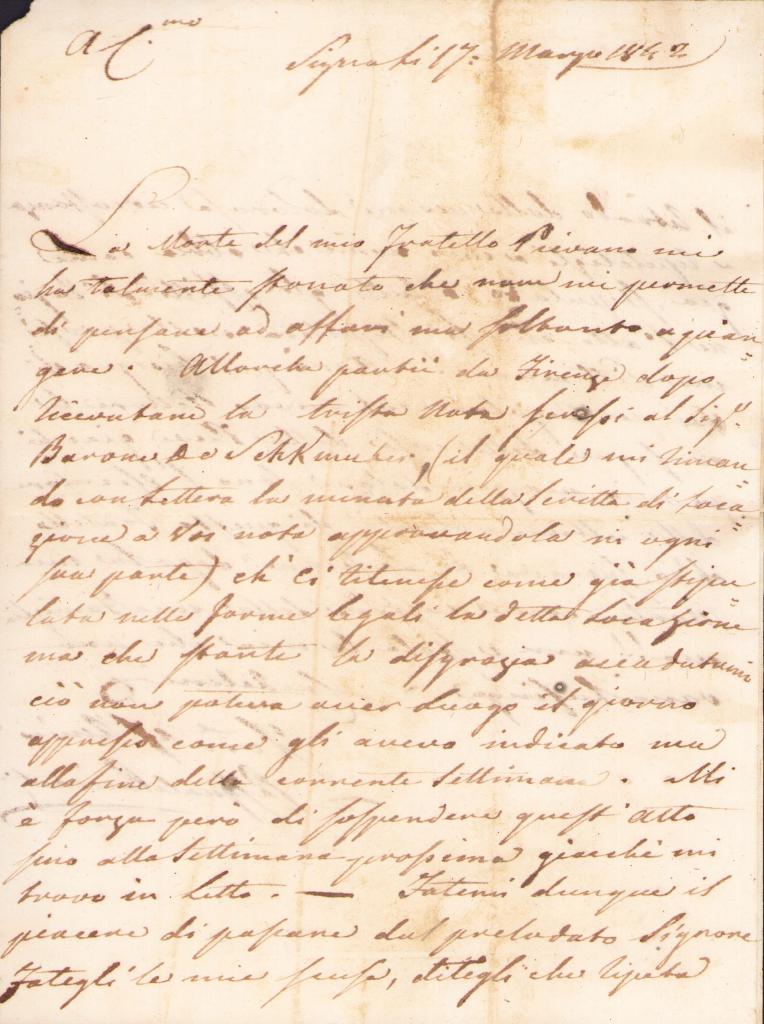 A. C.mo
Signa li 17. Marzo 1842
La Morte del mio Fratello Pievano mi
ha talmente stonato che non mi permette
di pensare ad affari ma soltanto a pian=
gere. Allorche partii da Firenze dopo
ricevutane la trista Nota scrissi al Sig.r
Barone De (il quale mi riman=
do con Lettera la minuta della Scritta di Loca=
zione a Voi nota approvandola in ogni
sua parte) ch' ei ritenesse come già stipu=
lata nelle forme legali la detta Locazione
ma che stante la disgrazia accadutami
ciò non poteva aver Luogo il giorno
appresso come gli avevo indicato ma
alla fine della corrente Settimana. Mi
è forza però di sospendere quest' atto
sino alla Settimana prossima giacchè mi
trovo in Letto. — Fatemi dunque il
piacere di passare dal prelodato Signore
Fategli le mie scuse, ditegli che ripeta